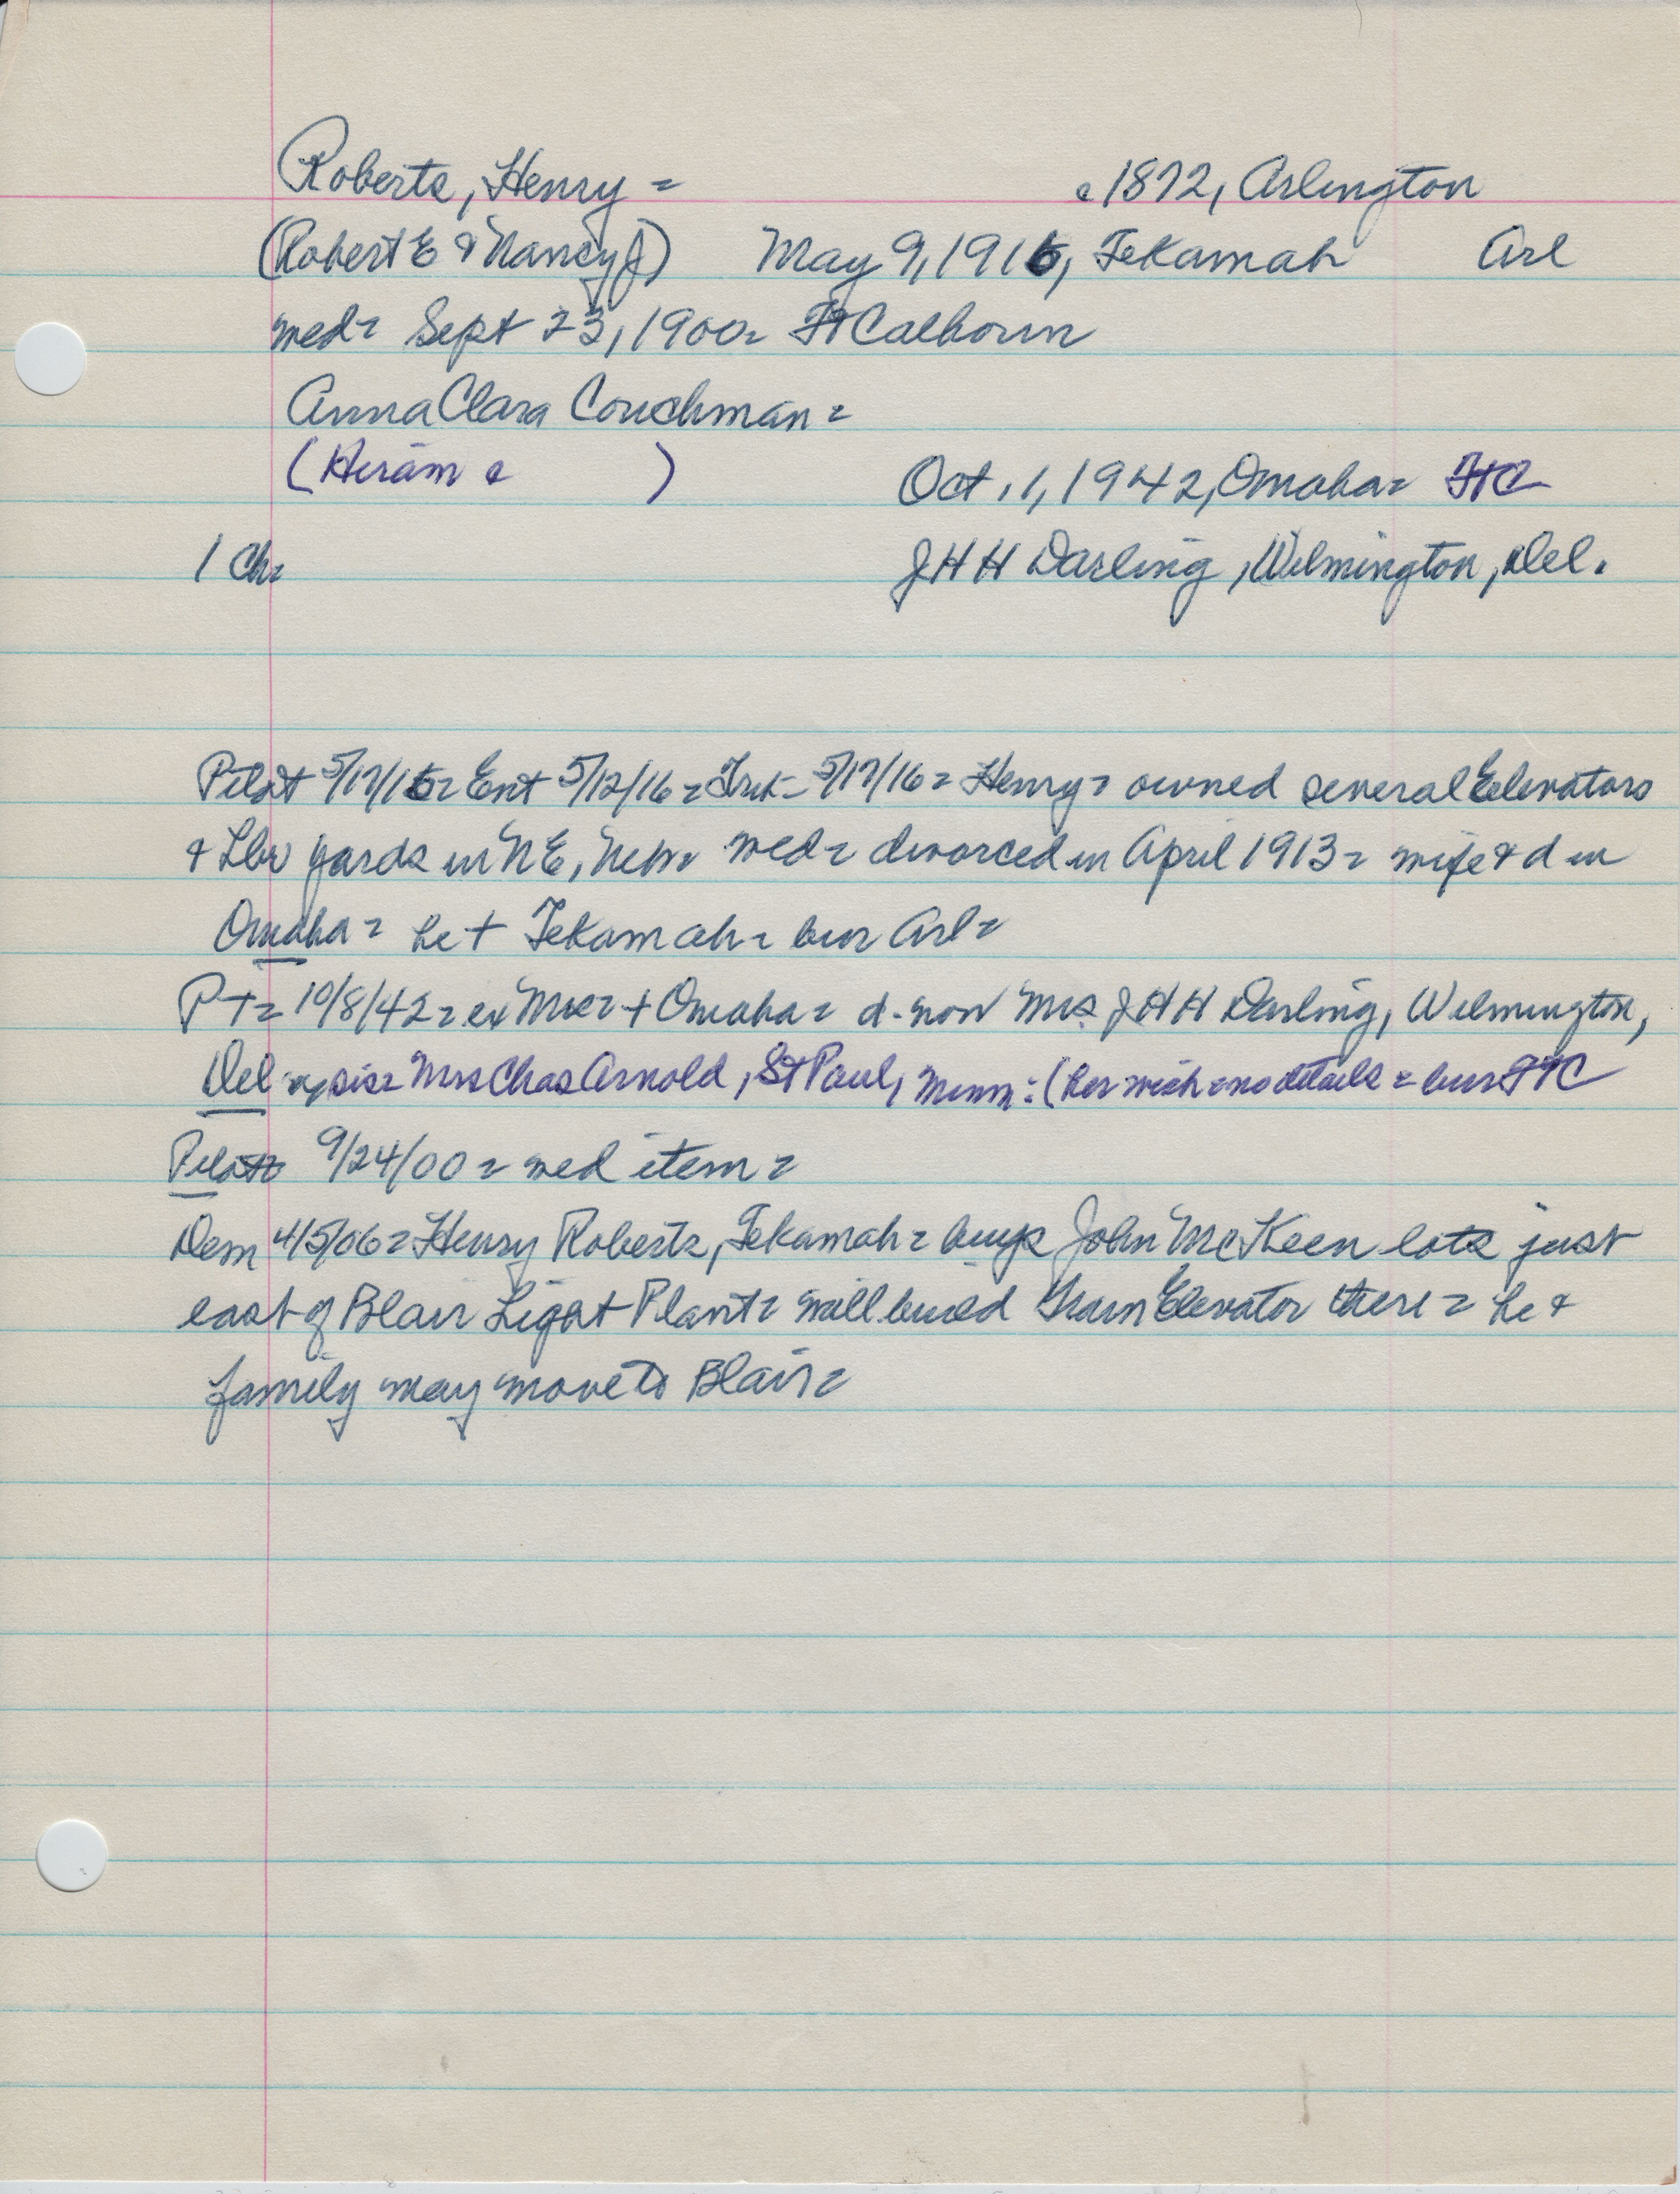 Roberts, Henry = c 1872, Arlington
(Robert E & Nancy J) May 9, 1916, Tekamah Arl
wed = Sept 23, 1900 = Ft Calhoun
Anna Clara Couchman =
(Hiram & )
Oct. 1, 1942, Omaha = FtC
1 Ch = J H H Darling, Wilmington, Del.
Pilot 5/17/16 = Ent 5/12/16 = Trib - 5/17/16 = Henry = owned several Elevators
& Lbr yards in NE, Nebr wed = divorced in April 1913 = wife & d in
Omaha = he + Tekamah = bur Arl =
P T = 10/8/42 = ex Mrs = + Omaha = d - now Mrs. J H H Darling, Wilmington,
Del sis = Mrs Chas Arnold, St Paul, Minn : (her wish = no details = bur FtC
Pilot 9/24/00 = wed item =
Dem 4/5/06 = Henry Roberts, Tekamah = buys John McKeen lots just
east of Blair Light Plant = will build Grain Elevator there = he &
family may move to Blair =